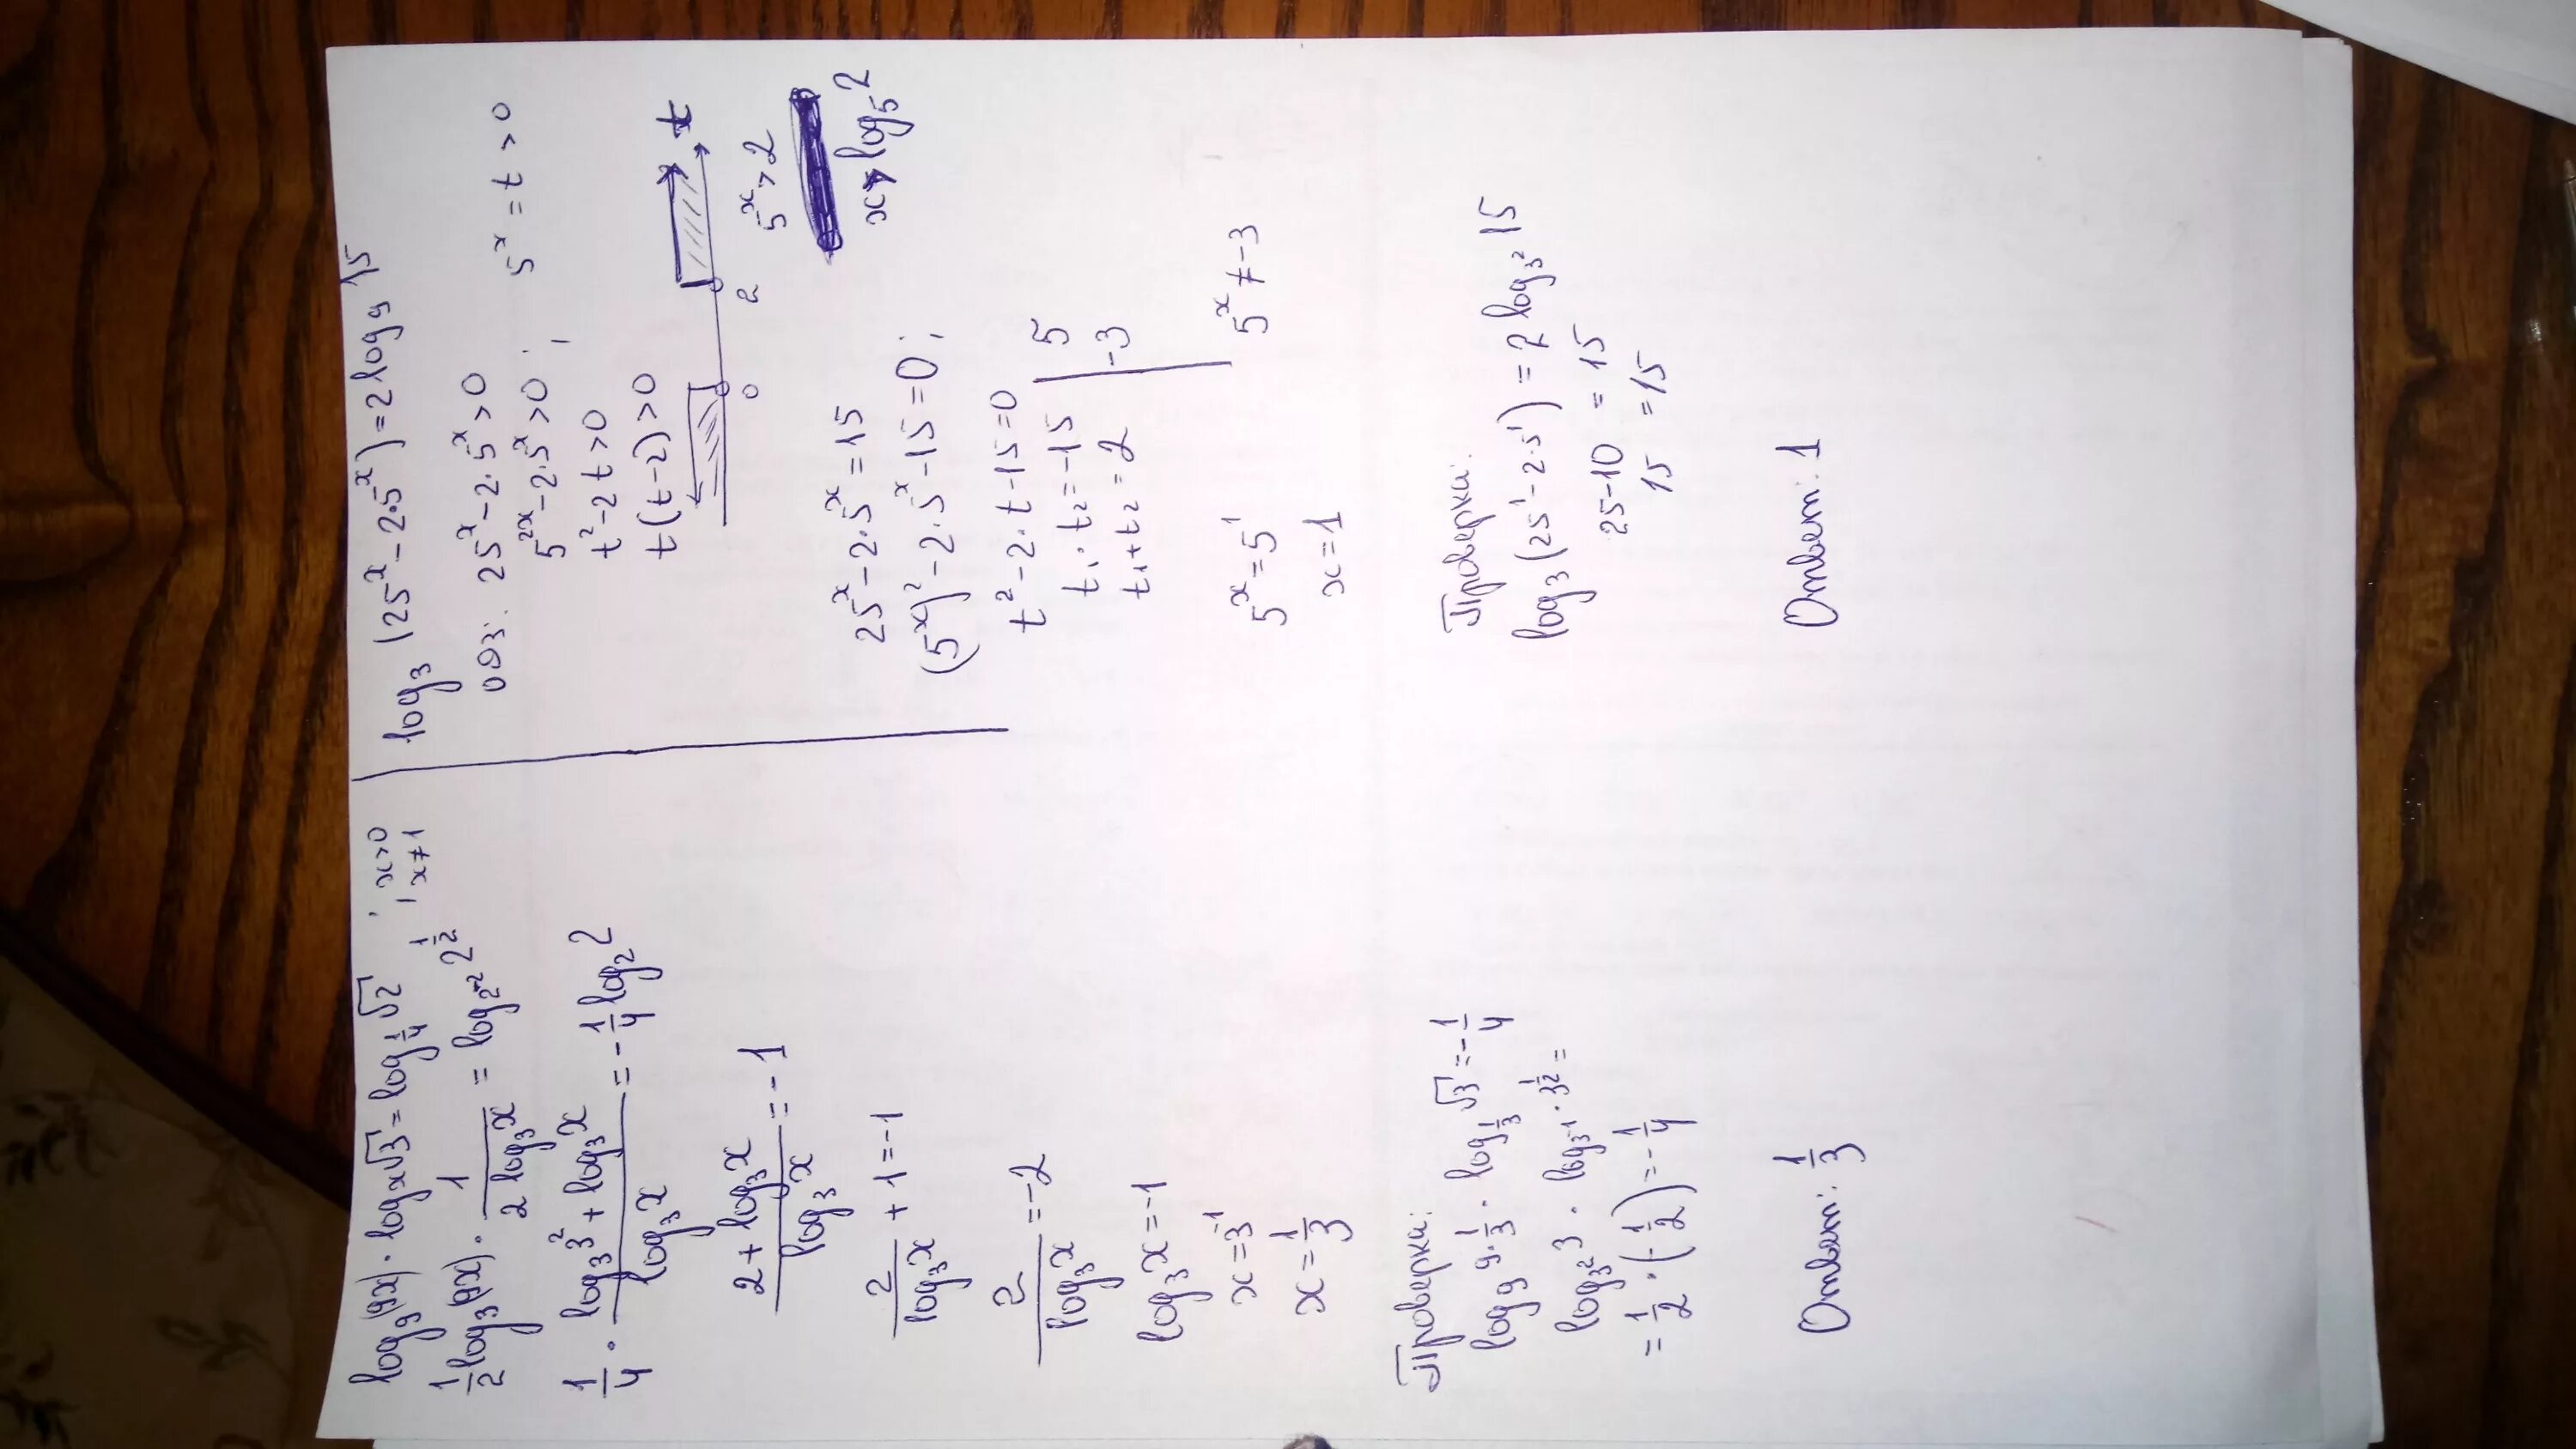 log₉(9x) · logₓ√3 = log_{1/4}√2 ; x>0
; x≠1
1/2 log₃(9x) · 1/(2 log₃x) = log_{2⁻²} 2^{1/2}
1/4 · (log₃3² + log₃x)/(log₃x) = -1/4 log₂2
(2 + log₃x)/(log₃x) = -1
2/(log₃x) + 1 = -1
2/(log₃x) = -2
log₃x = -1
x = 3⁻¹
x = 1/3
Проверка:
log₉ 9·1/3 · log_{1/3} √3 = -1/4
log_{3²} 3 · log_{3⁻¹} · 3^{1/2} =
= 1/2 · (-1/2) = -1/4
Ответ: 1/3
log₃(25ˣ - 2·5ˣ) = 2 log₉ 15
ОДЗ: 25ˣ - 2·5ˣ > 0
5²ˣ - 2·5ˣ > 0 ; 5ˣ = t > 0
t² - 2t > 0
t(t-2) > 0
t
0 2
5ˣ > 2
x > log₅2
25ˣ - 2·5ˣ = 15
(5ˣ)² - 2·5ˣ - 15 = 0;
t² - 2·t - 15 = 0
t₁ · t₂ = -15 | 5
t₁ + t₂ = 2 | -3
5ˣ = 5¹ 5ˣ ≠ -3
x = 1
Проверка:
log₃(25¹ - 2·5¹) = 2 log_{3²} 15
25 - 10 = 15
15 = 15
Ответ: 1